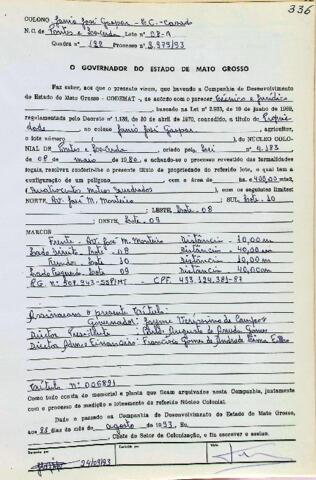 336
COLONO Janio José Gaspar - E.C. - Casado
N.C. de Pontes e Lacerda Lote nº 08-A
Quadra nº 122 Processo nº 3.979/93
O GOVERNADOR DO ESTADO DE MATO GROSSO
Faz saber, aos que o presente virem, que havendo a Companhia de Desenvolvimento
do Estado de Mato Grosso - CODEMAT -, de acordo com o parecer técnico e Jurídico
baseado na Lei nº 2.933, de 19 de junho de 1969,
regulamentada pelo Decreto nº 1.138, de 30 de abril de 1970, concedido, a título de Propie
dade ao colono Janio José Gaspar, agricultor,
o lote número do NÚCLEO COLO-
NIAL Pontes e Lacerda, criado pela Lei nº 4.183
de 08 de maio de 1980 e achando-se o processo revestido das formalidades
legais, resolveu conferir-lhe o presente título de propriedade do referido lote, o qual tem a
configuração de um polígono com a área de m2 400,00 mts
(Quatrocentos metros Quadrados) com os seguintes limites:
NORTE, Av. José M. Monteiro SUL lote-10
LESTE, lote-08
OESTE, lote-09
MARCOS
Frente - Av. José M. Monteiro Distância - 10,00 m
Lado Direito lote - 08 Distância - 40,00 m
Fundos lote - 10 Distância - 10,00 m
Lado Esquerdo lote 09 Distância - 40,00 m
R.G. nº 507.943-SSP/MT - CPF. 433.124.381-87
Assinaram o presente título:
Governador: Jayme Veríssimo de Campos
Director Presidente: Augusto de Arruda Gomes
Director Adm e Financeiro: Francisco Gomes de Andrade Lima Filho
Título Nº 006821
Como tudo consta do memorial e planta que ficam arquivados nesta Companhia, juntamente
com o processo de medição e loteamento do referido Núcleo Colonial.
Dado e passado na Companhia de Desenvolvimento do Estado de Mato Grosso,
aos 23 dias do mês de agosto de 1993. Eu,
Chefe do Setor de Colonização, o fiz escrever e assino.
24/09/93